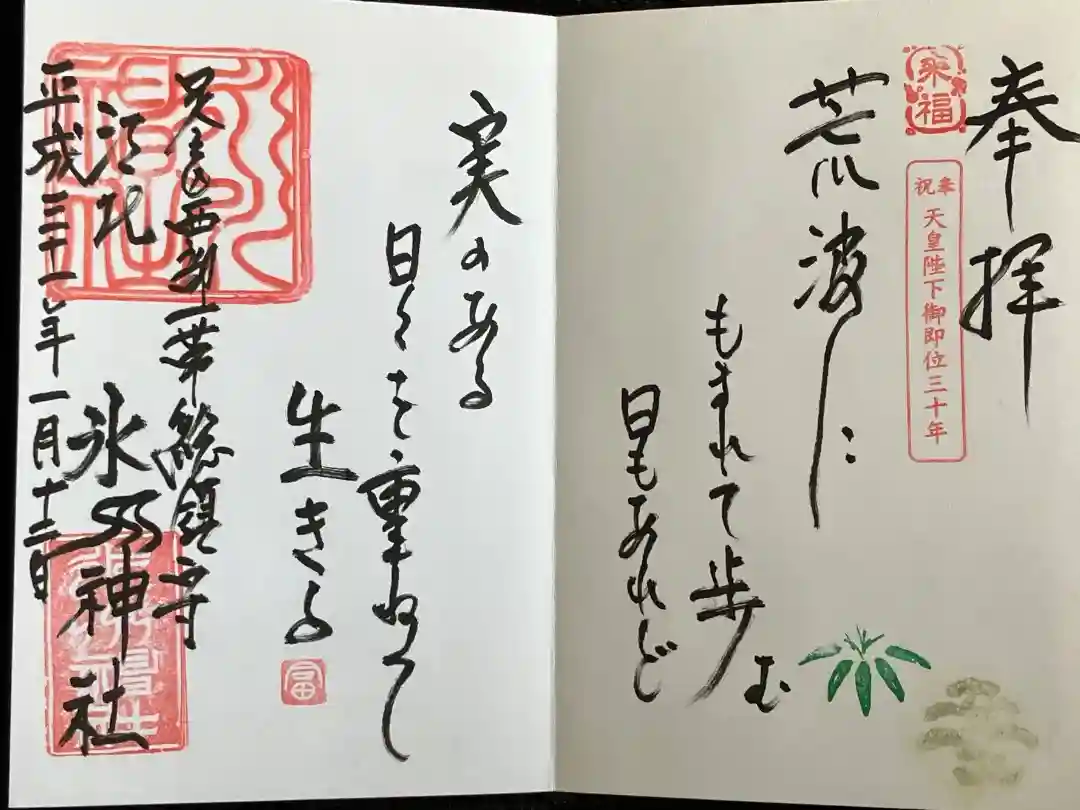 奉拝
来福
奉祝
天皇陛下御即位三十年
荒波に
もまれて歩む
日もあれど
実のある
日々を重ねて
生きる
富
足立区西部一帯総鎮守
江北
氷川神社
平成三十一年一月十二日